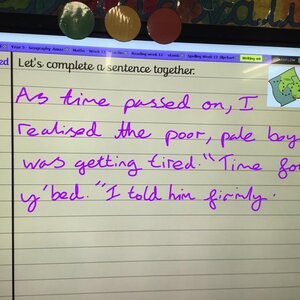 Year 5 - Geography-Amaz
Maths - Week 13
Reading week 13
Spelling Week 13
ed Let's complete a sentence together.
As time passed on, I
realised the poor, pale boy
was getting tired. "Time for
y'bed." I told him firmly.